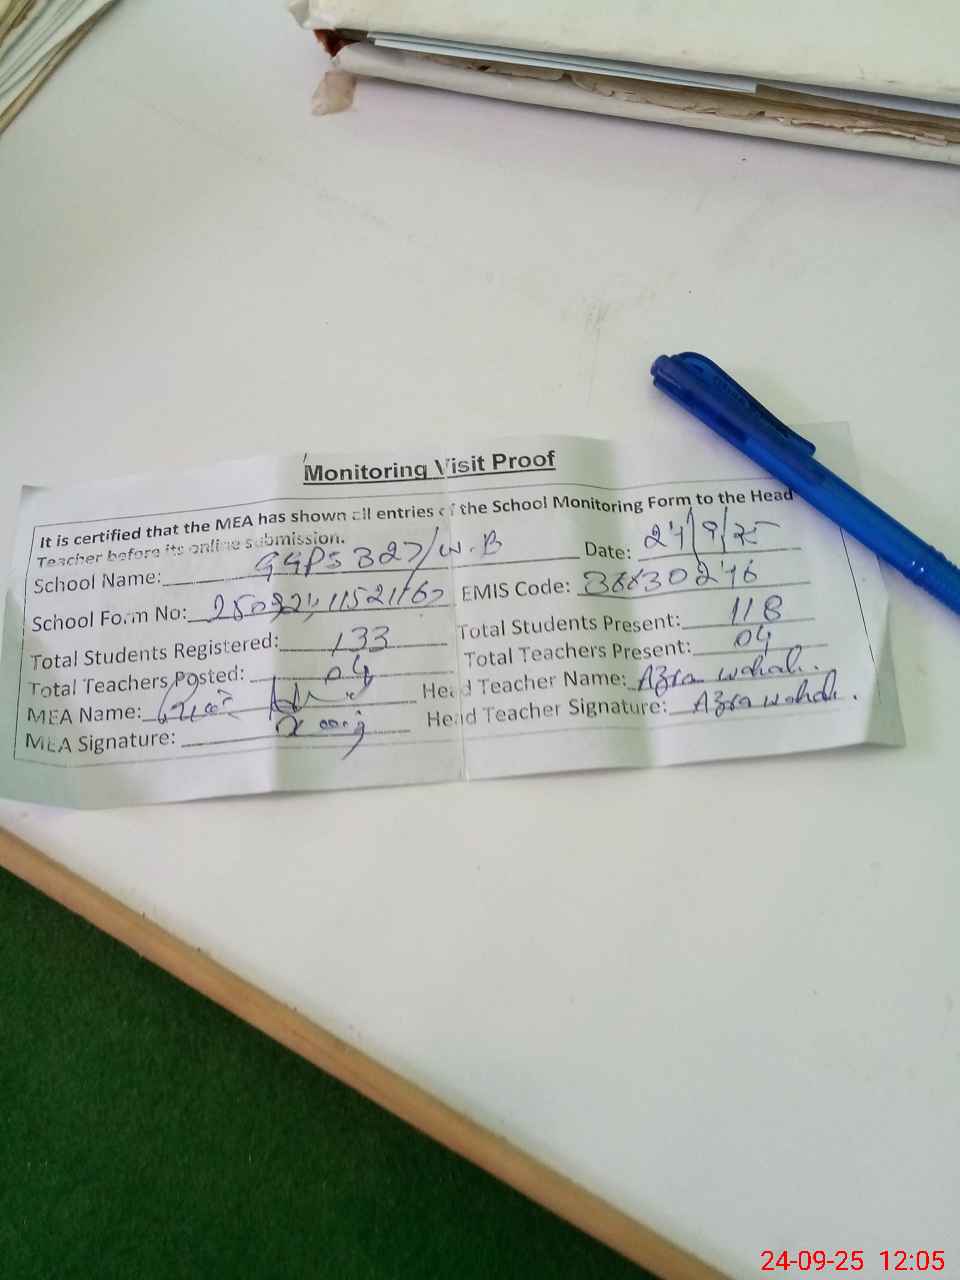 Monitoring Visit Proof
It is certified that the MEA has shown all entries of the School Monitoring Form to the Head
Teacher before its online submission.
School Name: GGPS 327/W.B Date: 24/9/25
School Form No: EMIS Code: 36630246
Total Students Registered: 133 Total Students Present: 118
Total Teachers Posted: 04 Total Teachers Present: 04
MEA Name: Head Teacher Name: Azra wahab.
MEA Signature: Head Teacher Signature: Azra wahab.
24-09-25 12:05